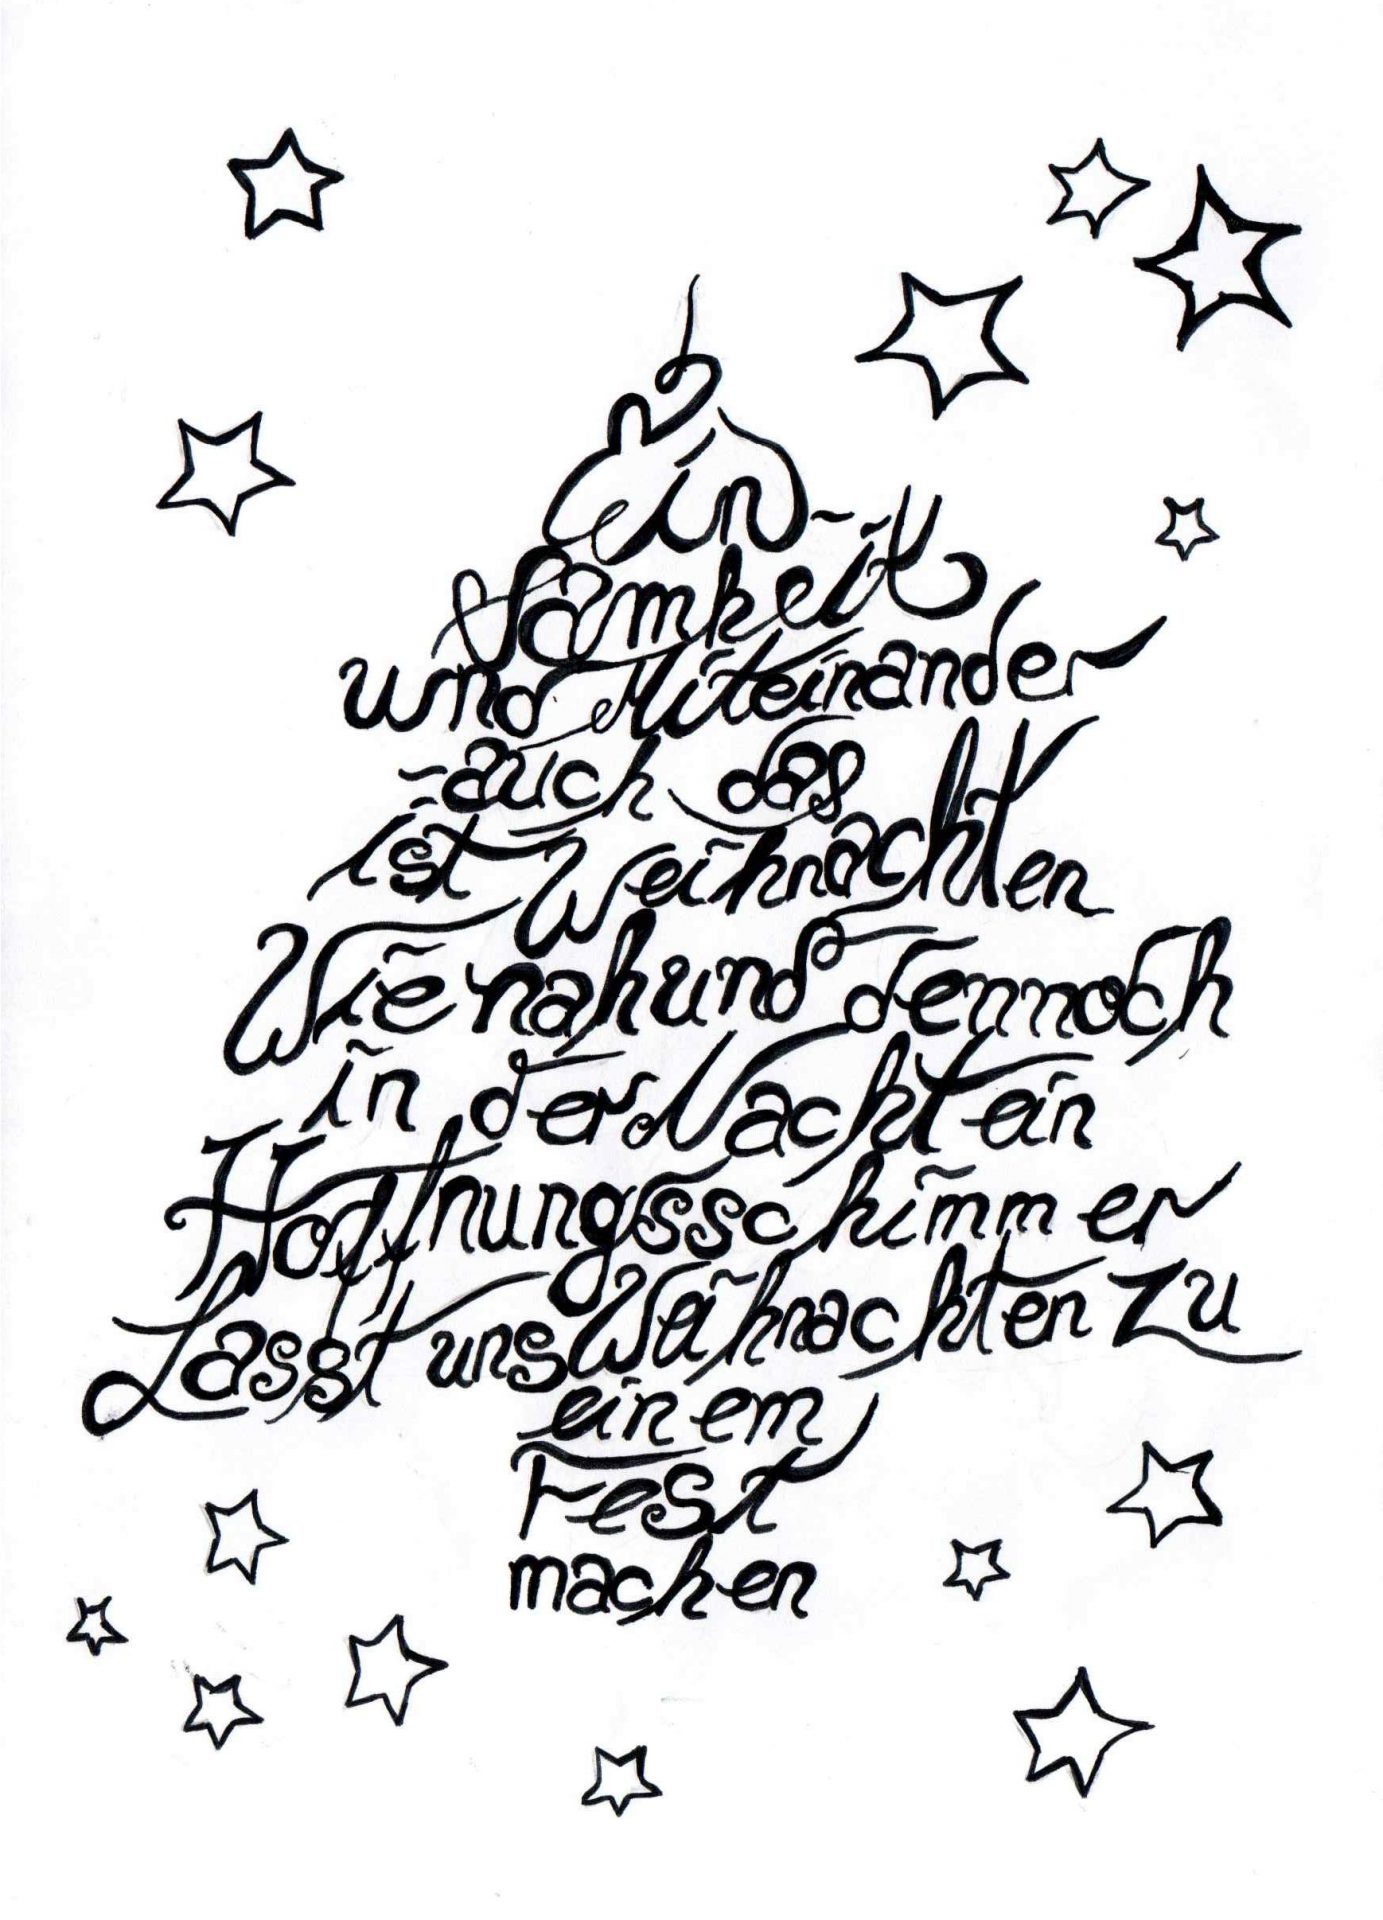 Ein-
samkeit
und Miteinander
-auch das
ist Weihnachten
Wie nah und dennoch
in der Nacht ein
Hoffnungsschimmer
Lasst uns Weihnachten zu
einem
Fest
machen